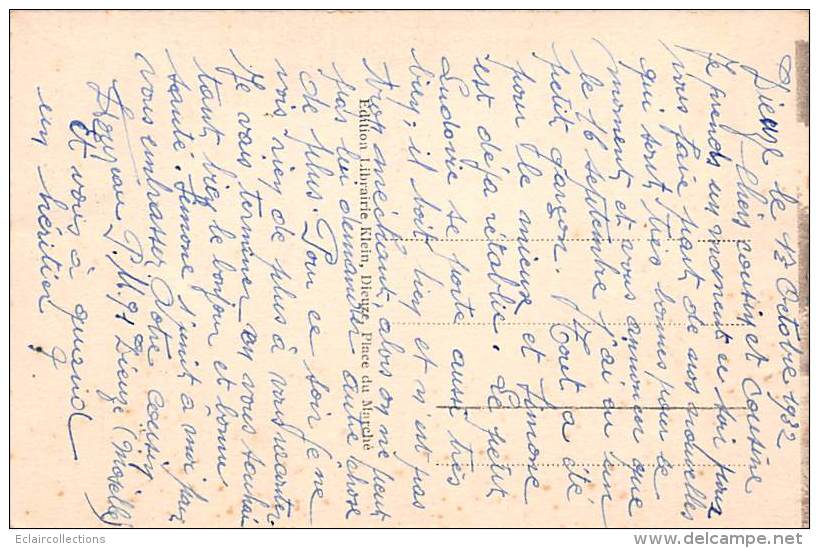 Dieuze le 13 Octobre 1932
Chers cousin et Cousine
Je prends un moment ce soir pour
vous faire part de nos nouvelles
qui sont très bonnes pour le
moment et vous annoncer que
le 16 septembre j'ai eu un
petit garçon. Tout a été
pour le mieux et Simone
est déjà rétablie. Le petit
Ludovic se porte aussi très
bien, il boit bien et n'est pas
trop méchant, alors on ne peut
pas lui demander autre chose
de plus. Pour ce soir je ne
vois rien de plus à vous raconter
Je vais terminer en vous souhai
tant bien le bonjour et bonne
santé. Simone s'unit à moi pour
vous embrasser. Votre cousin
P. M 91 Dieuze (Moselle)
Et vous à quand
un héritier ?
Edition Librairie Klein, Dieuze, Place du Marché
Eclaircollections
delcampe.net